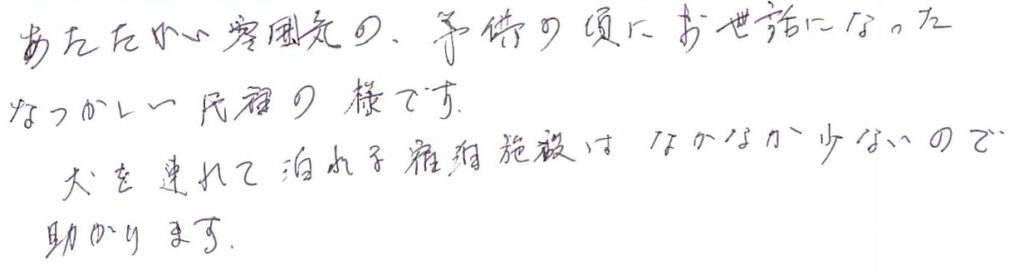 あたたかい雰囲気の、子供の頃にお世話になった
なつかしい民宿の様です.
犬を連れて泊れる宿泊施設はなかなか少ないので
助かります.